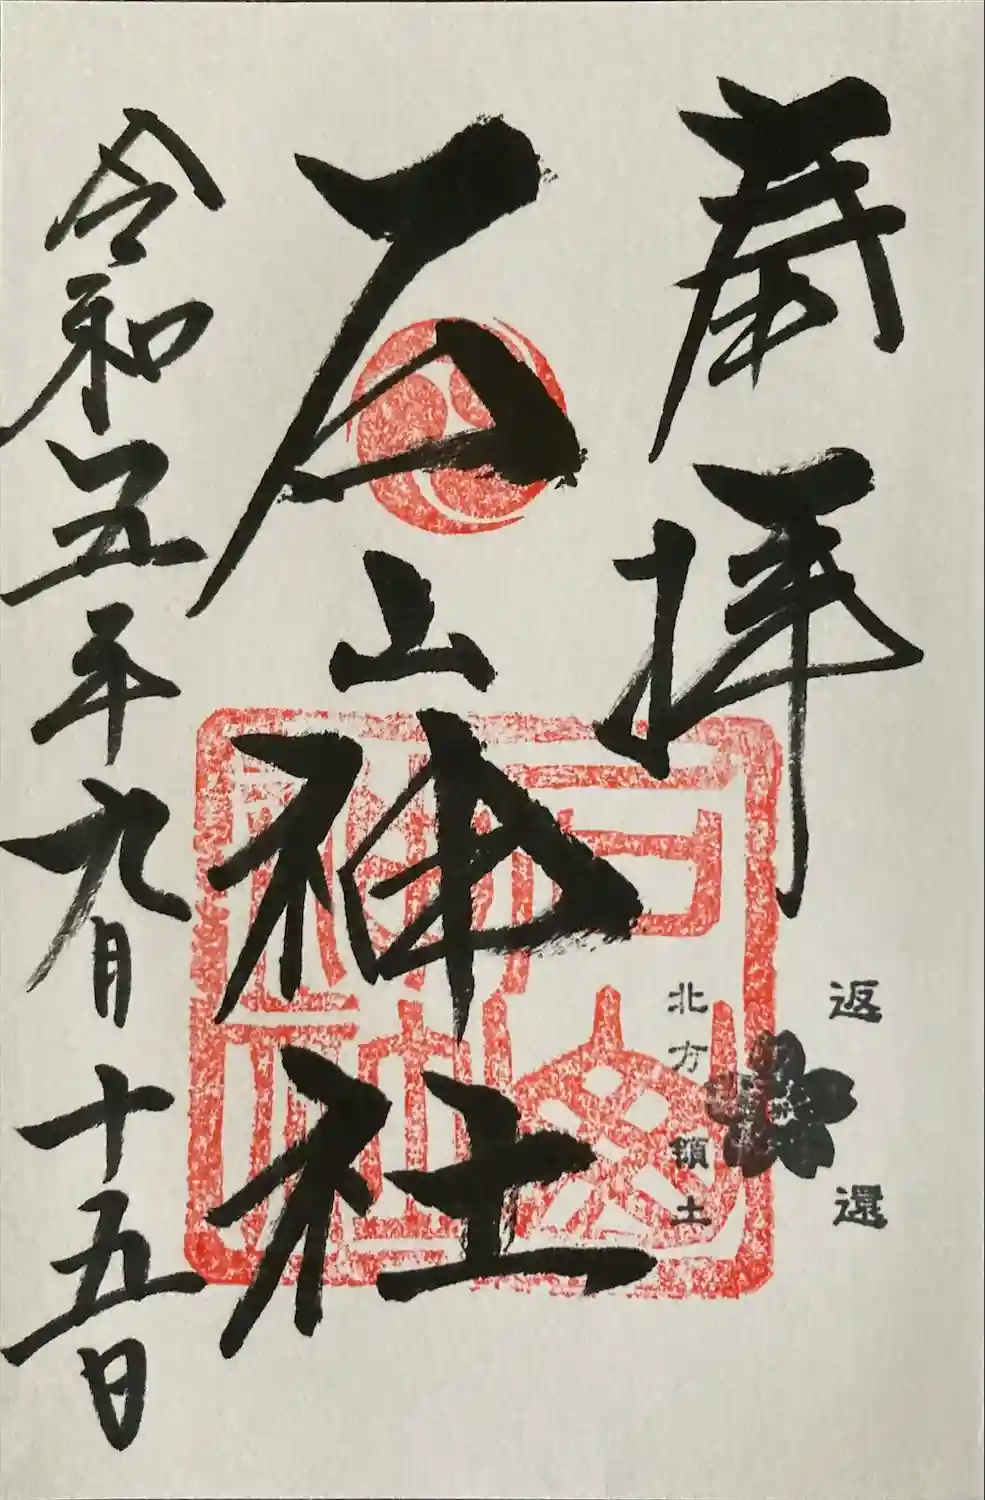 奉拝
北方領土
返還
石山神社
石山神社
令和五年九月十五日